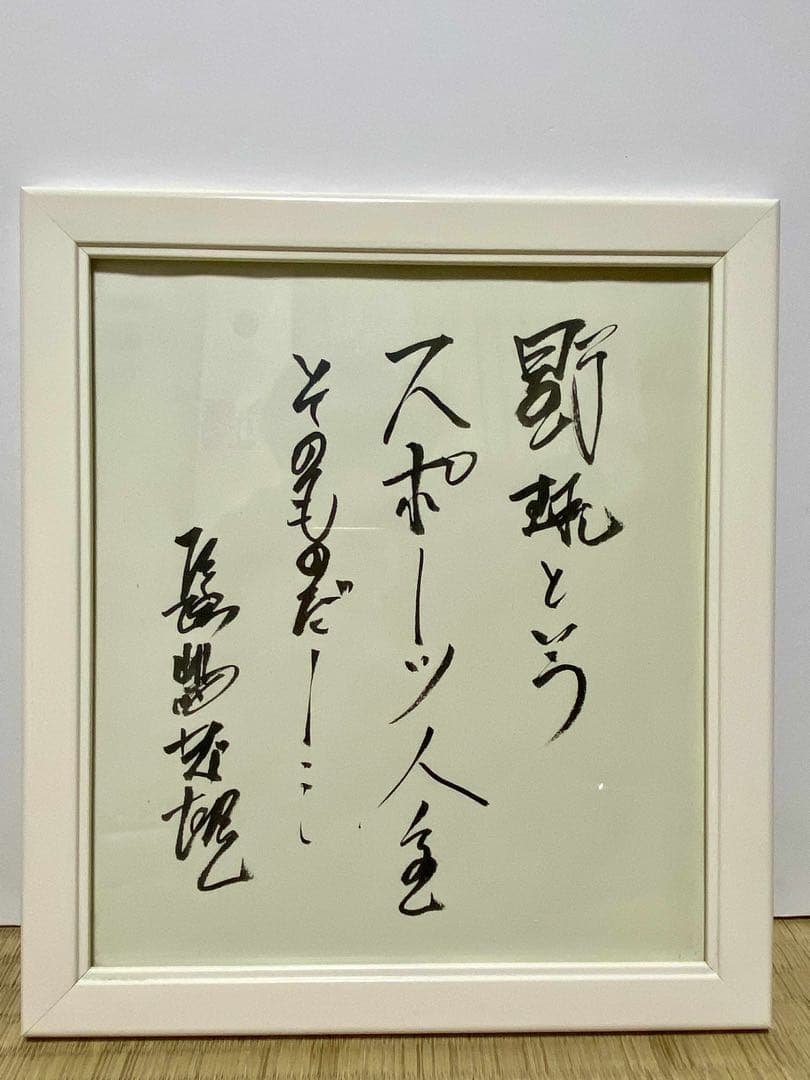 野球という
スポーツ人生
そのものだ
長嶋茂雄